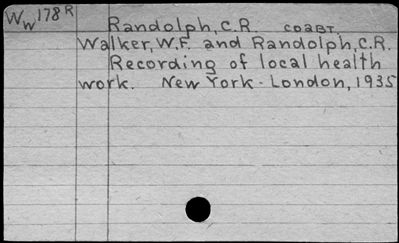 Ww178R Randolph, C.R. соавт.
Walker, W.F. and Randolph, C.R.
Recording of local health
work. New York - London, 1935